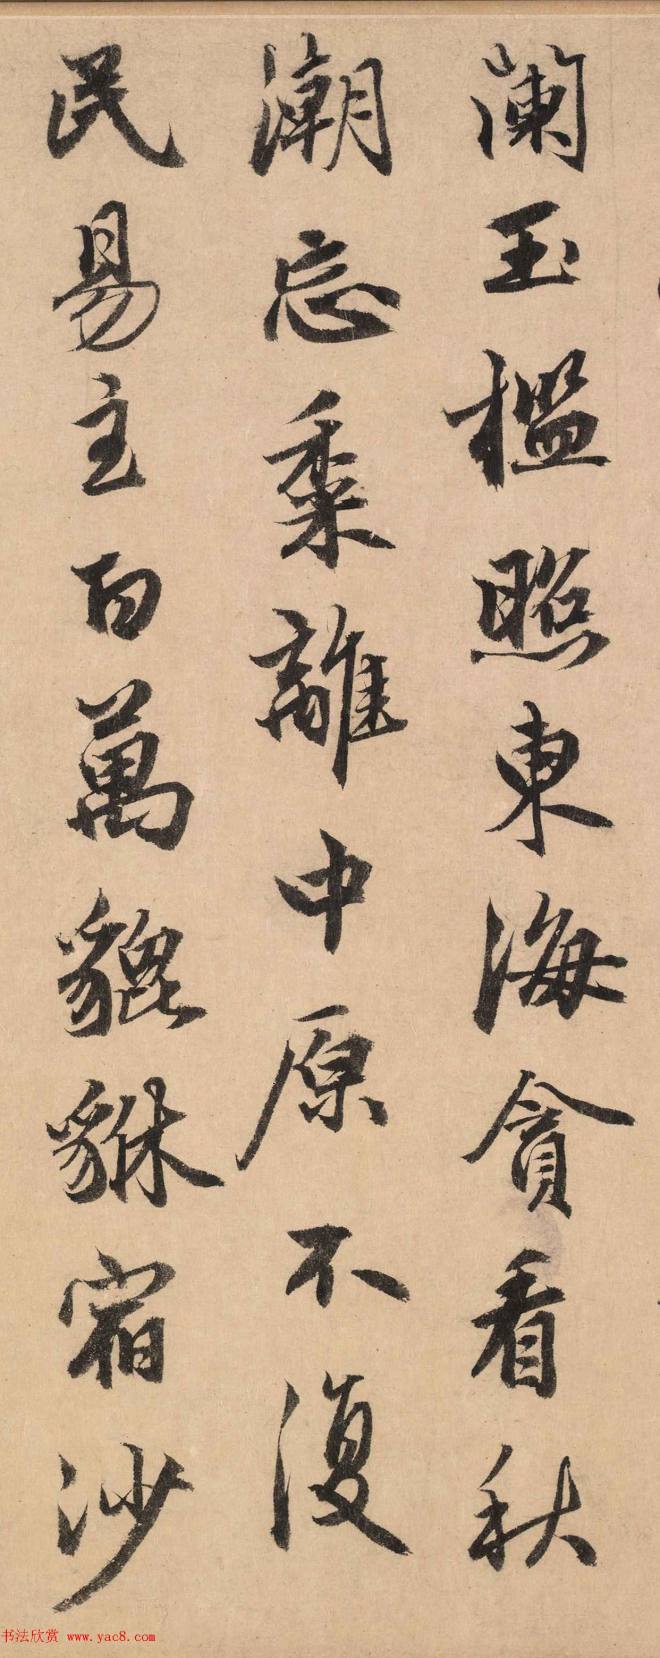 蘭玉檻照東海貪看秋
潮忘黍離中原不復
民易主百萬貔貅宿沙
书法欣赏 www.yac8.com